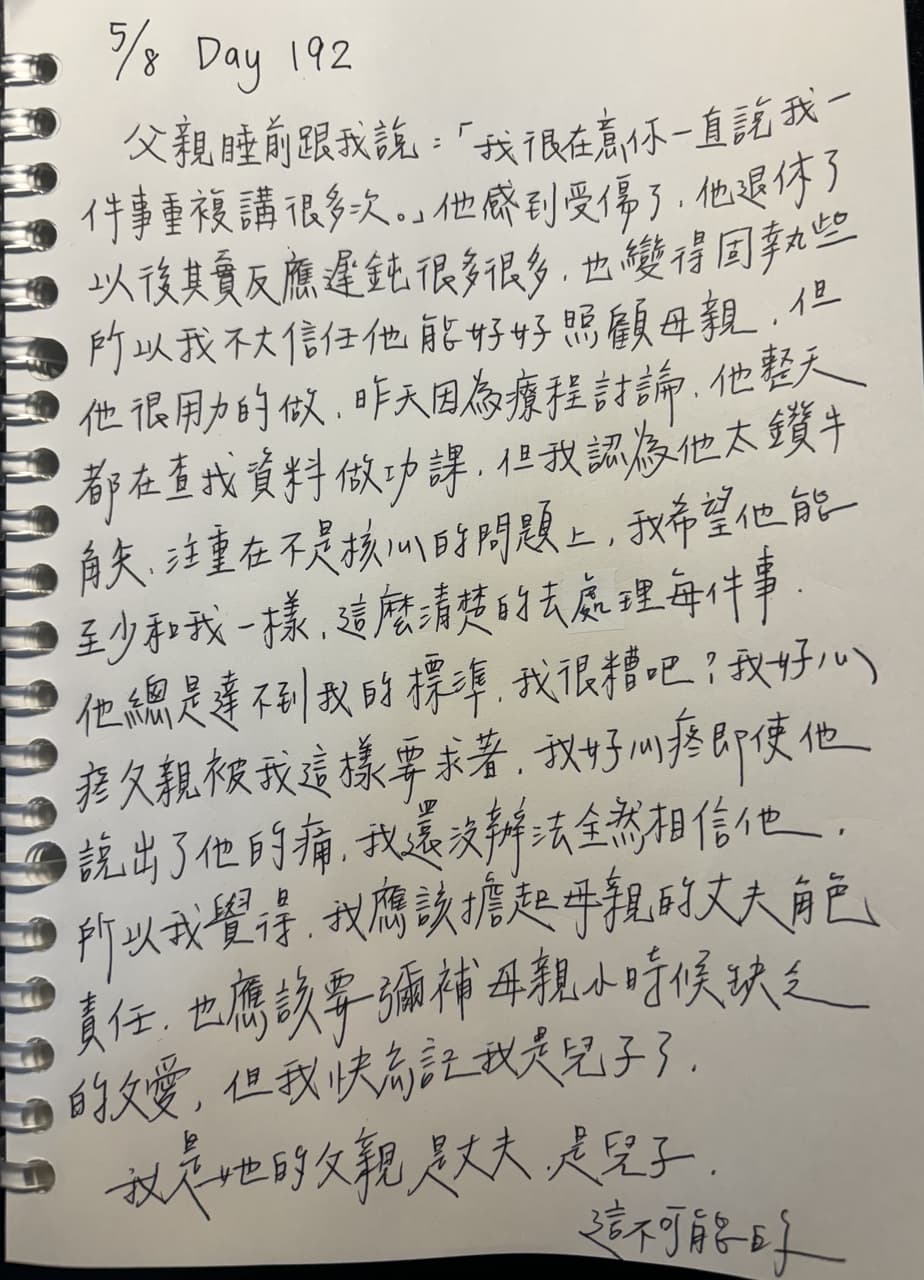 5/8 Day 192
父親睡前跟我說：「我很在意你一直說我一
件事重複講很多次。」他感到受傷了，他退休了
以後其實反應遲鈍很多很多，也變得固執些
所以我不大信任他能好好照顧母親，但
他很用力的做，昨天因為療程討論，他整天
都在查找資料做功課，但我認為他太鑽牛
角尖、注重在不是核心的問題上，我希望他能
至少和我一樣，這麼清楚的去處理每件事．
他總是達不到我的標準，我很糟吧？我好心
疼父親被我這樣要求著，我好心疼即使他
說出了他的痛，我還沒辦法全然相信他．
所以我覺得，我應該擔起母親的丈夫角色
責任，也應該要彌補母親小時候缺乏
的父愛，但我快忘記我是兒子了．
我是她的父親、是丈夫、是兒子．
這不可能的